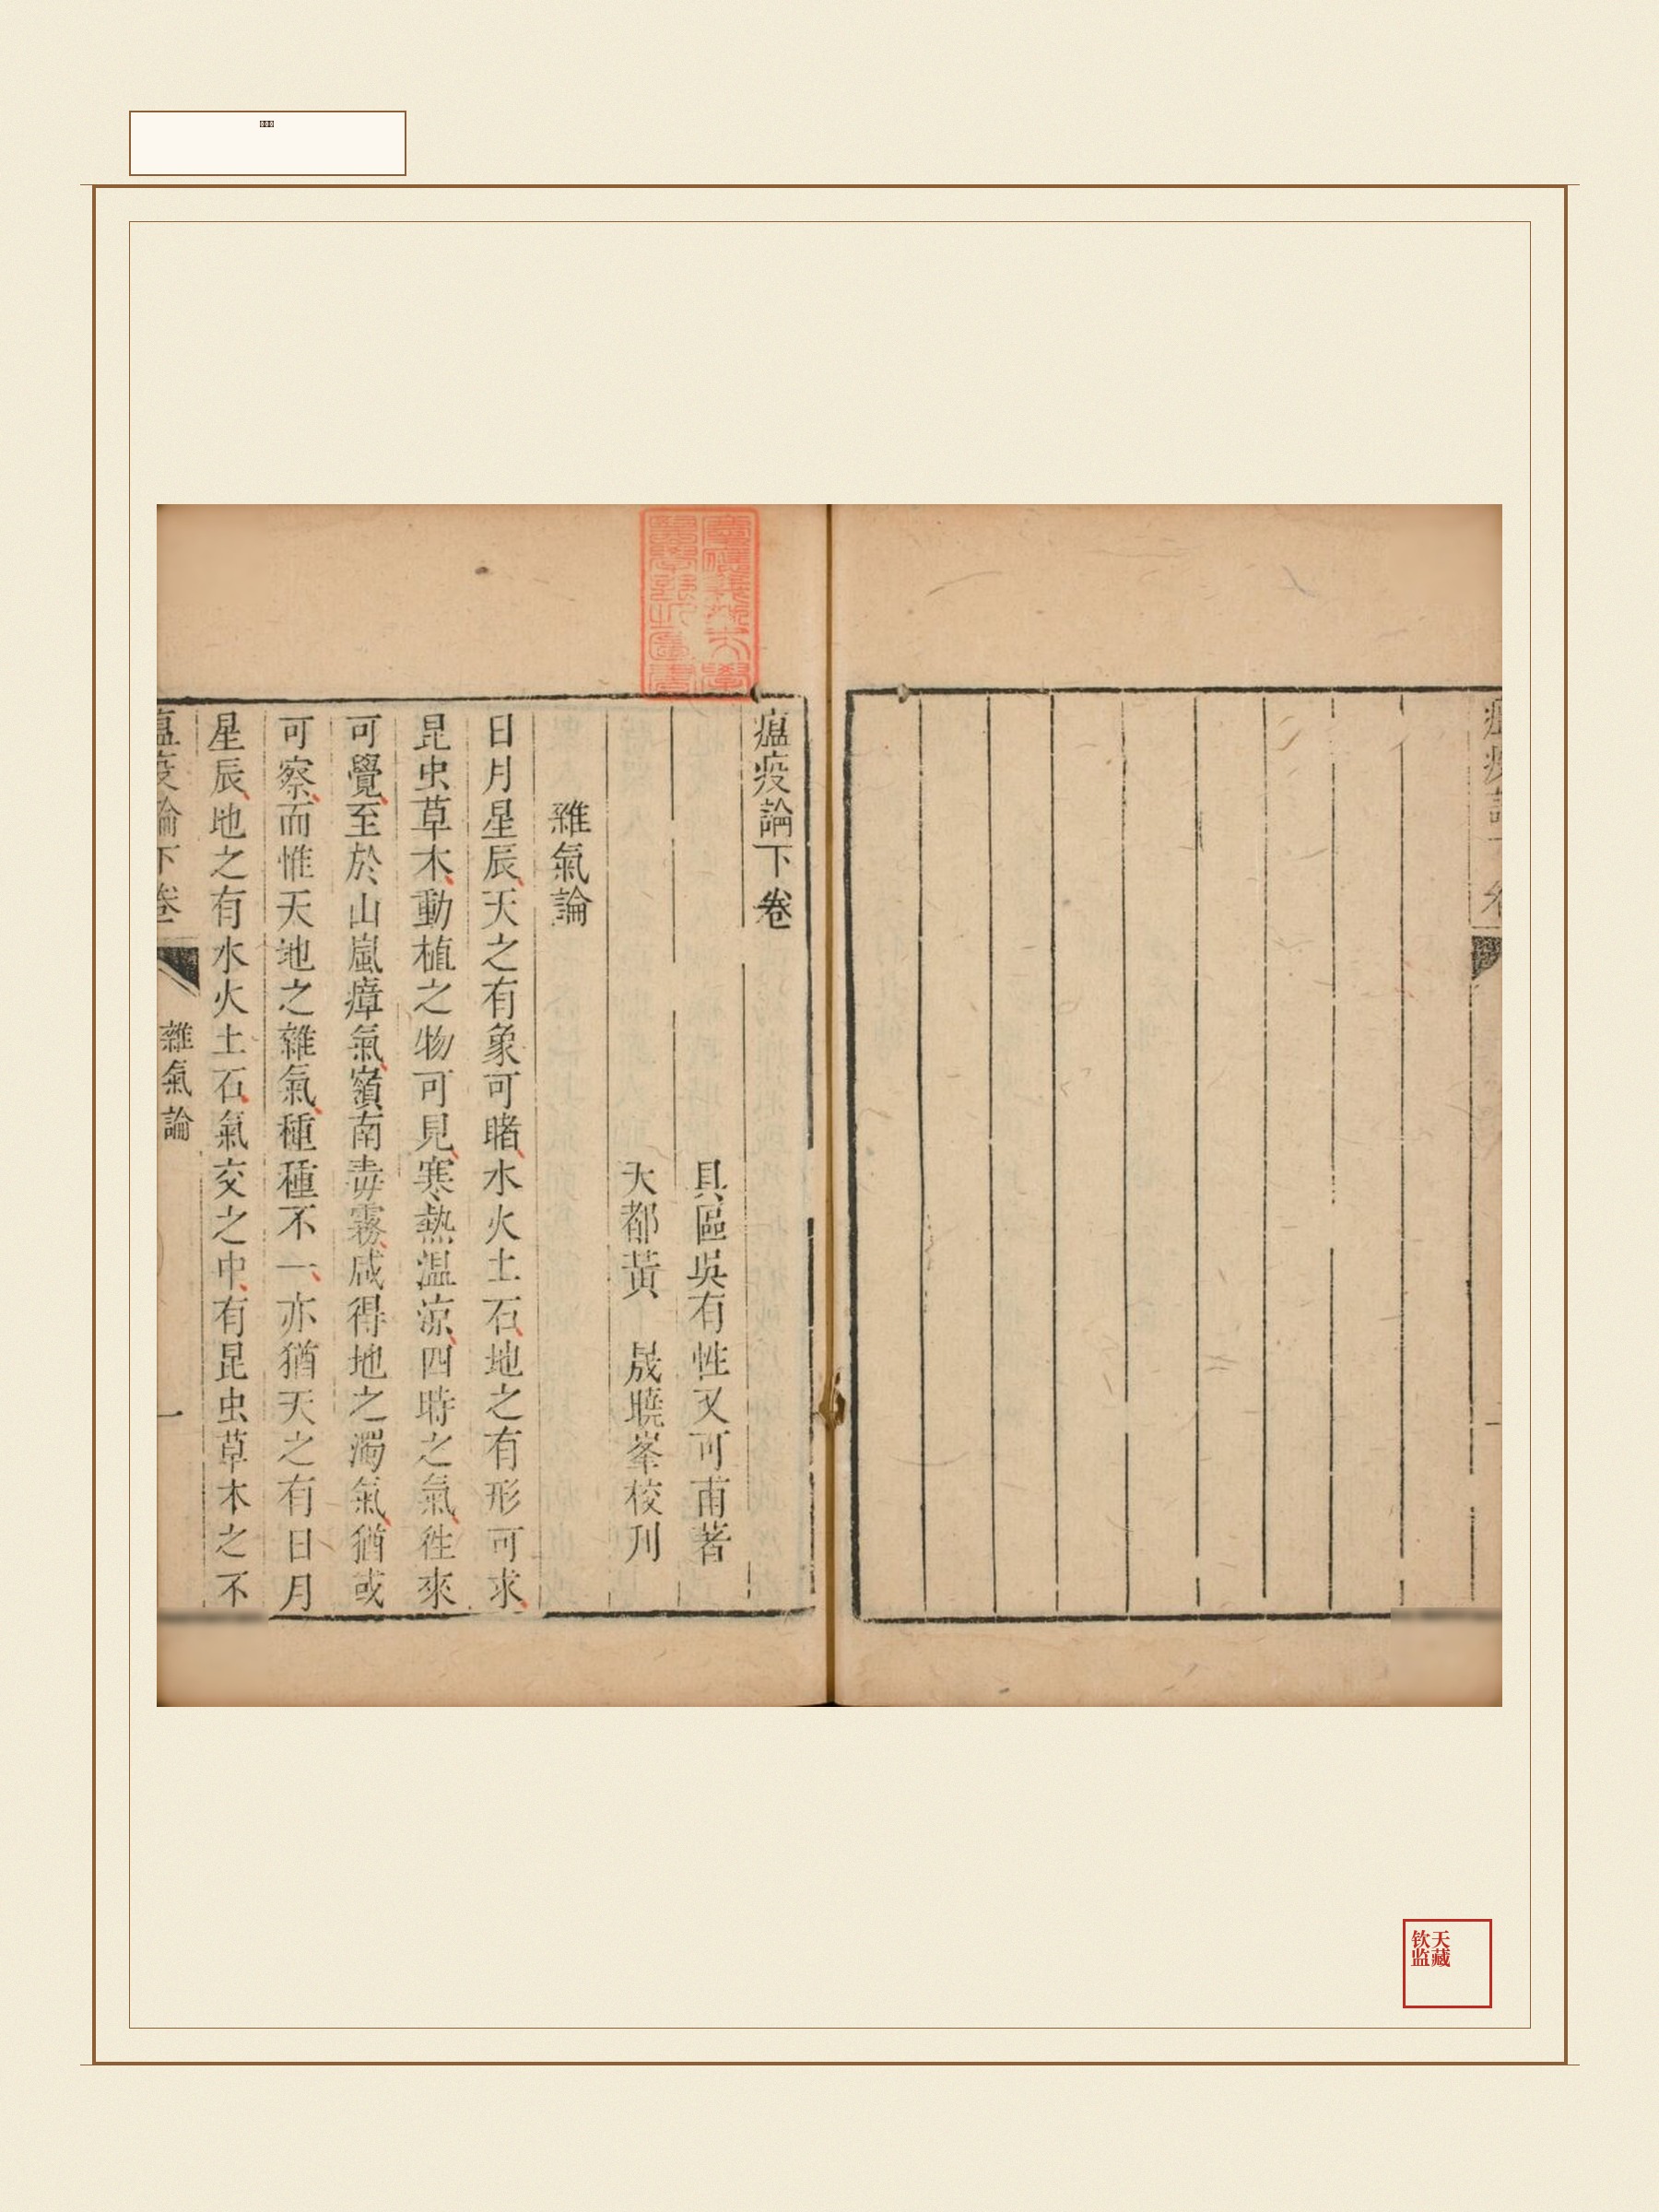 慶應義塾大學
瘟疫論下卷
具區吳有性又可甫著
天都黃 晟曉峯校刊
雜氣論
日月星辰天之有象可睹水火土石地之有形可求
昆虫草木動植之物可見寒熱温涼四時之氣徃來
可覺至於山嵐瘴氣嶺南毒霧咸得地之濁氣猶或
可察而惟天地之雜氣種種不一亦猶天之有日月
星辰地之有水火土石氣交之中有昆虫草木之不
瘟疫論下卷 雜氣論 一
钦天
监藏